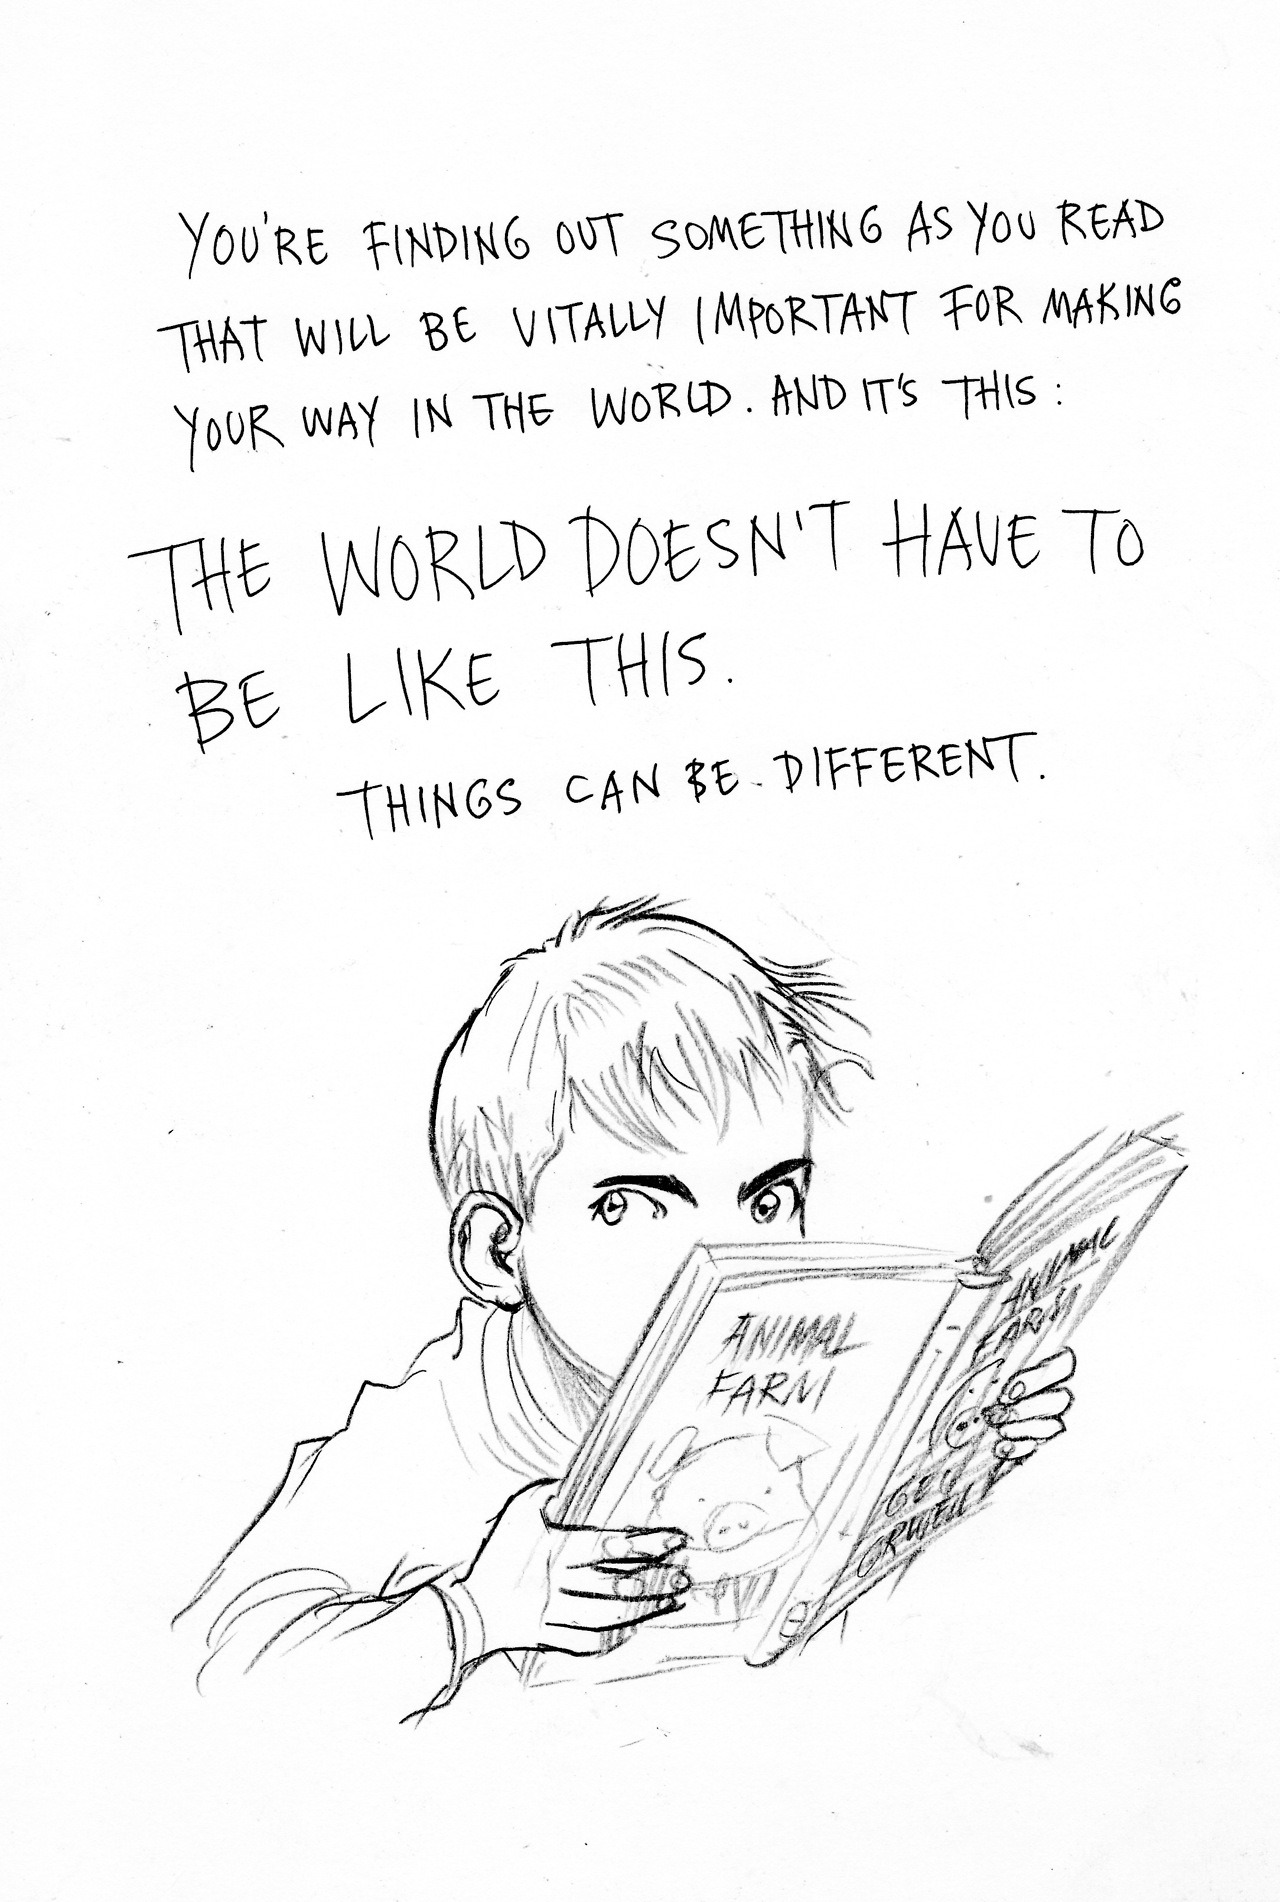 YOU'RE FINDING OUT SOMETHING AS YOU READ
THAT WILL BE VITALLY IMPORTANT FOR MAKING
YOUR WAY IN THE WORLD. AND IT'S THIS:
THE WORLD DOESN'T HAVE TO
BE LIKE THIS.
THINGS CAN BE DIFFERENT.
ANIMAL
FARM
ANIMAL
FARM
GEO
ORWELL